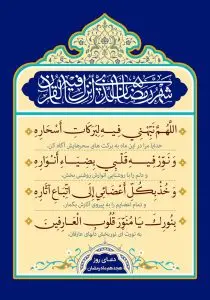 شهر رمضان الذی انزل فیه القرآن
اللَّهُمَّ نَبِّهْنِي فِيهِ لِبَرَكَاتِ أَسْحَارِهِ
خدایا مرا در این ماه به برکت های سحرهایش آگاه کن،
وَ نَوِّرْ فِيهِ قَلْبِي بِضِيَاءِ أَنْوَارِهِ
و دلم را با روشنایی انوارش روشنی بخش،
وَ خُذْ بِكُلِّ أَعْضَائِي إِلَى اتِّبَاعِ آثَارِهِ
و تمام اعضایم را به پیروی آثارش بگمار،
بِنُورِكَ يَا مُنَوِّرَ قُلُوبِ الْعَارِفِينَ
به نورت ای نوربخش دلهای عارفان.
دعای روز
هجدهم ماه رمضان